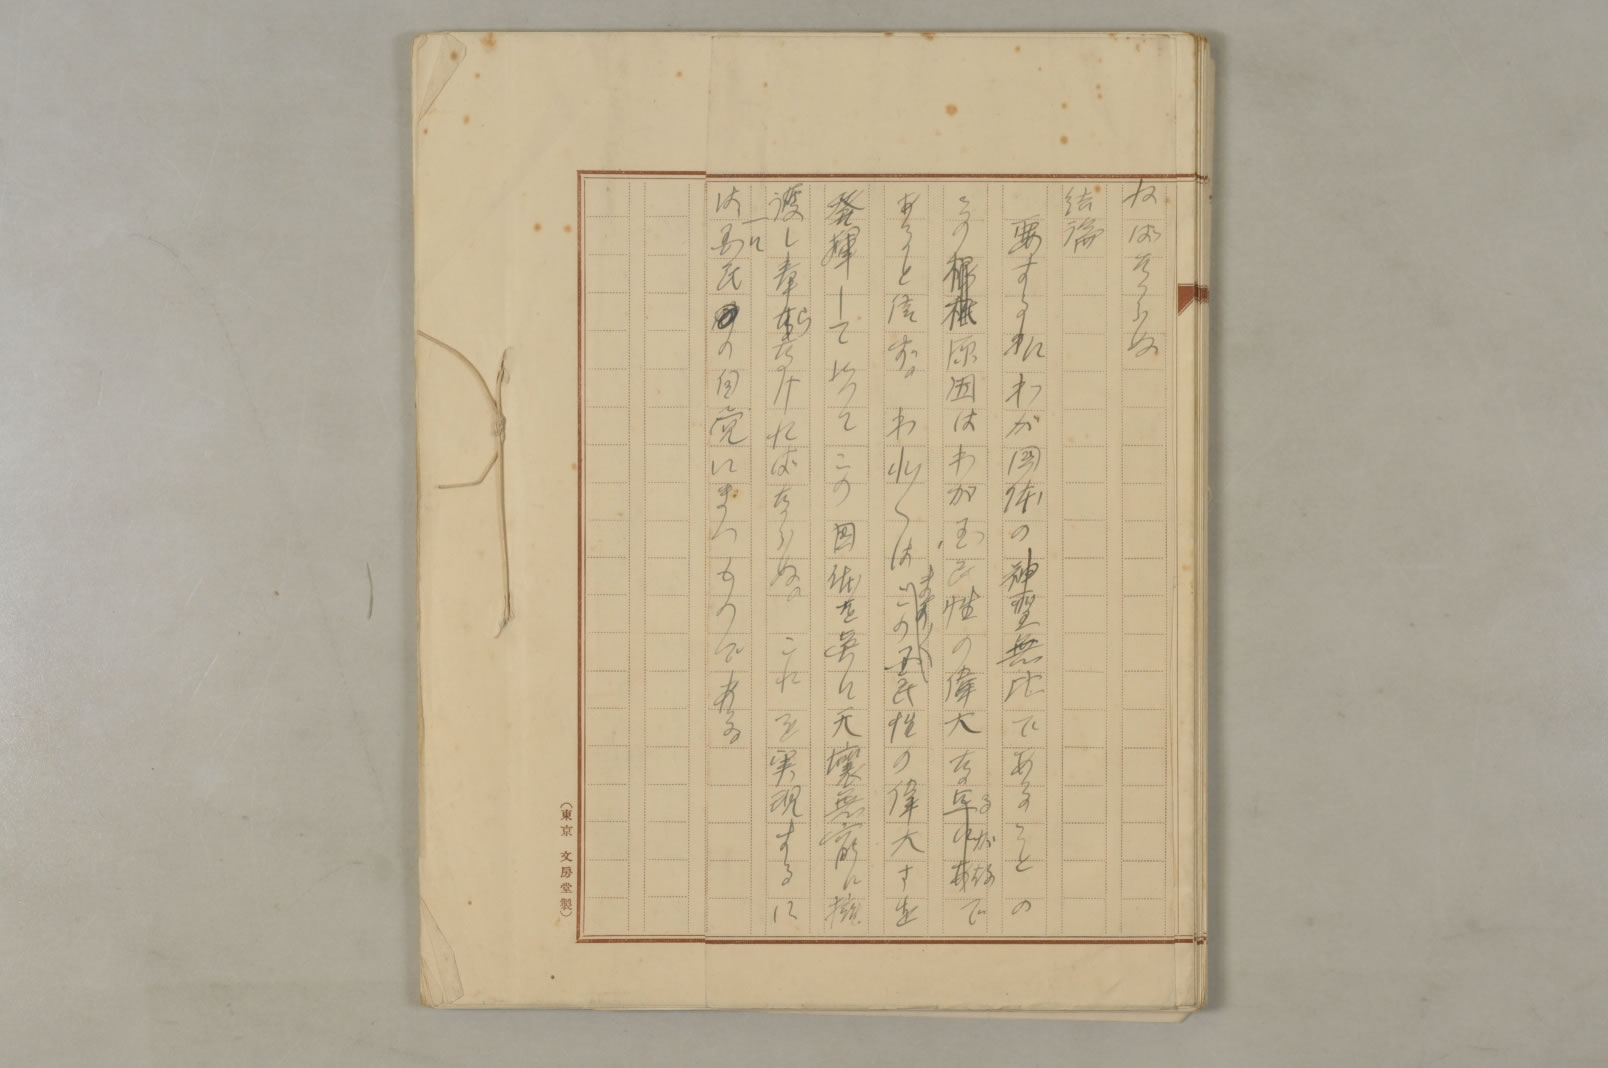 ねばならぬ
結論
要するにわが国体の神聖無比であることの
この根原因はわが国民性の偉大なるが故で
あると信ず。われ〱はますますこの国民性の偉大さを
発揮して以つてこの国体を無窮に擁
護し奉らなければならぬ。これを実現するに
は一に国民の自覚にまつものである
（東京 文房堂製）